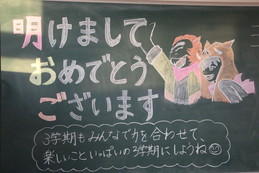 明けまして
おめでとう
ございます
3学期もみんなで力を合わせて、
楽しいこといっぱいの3学期にしようね